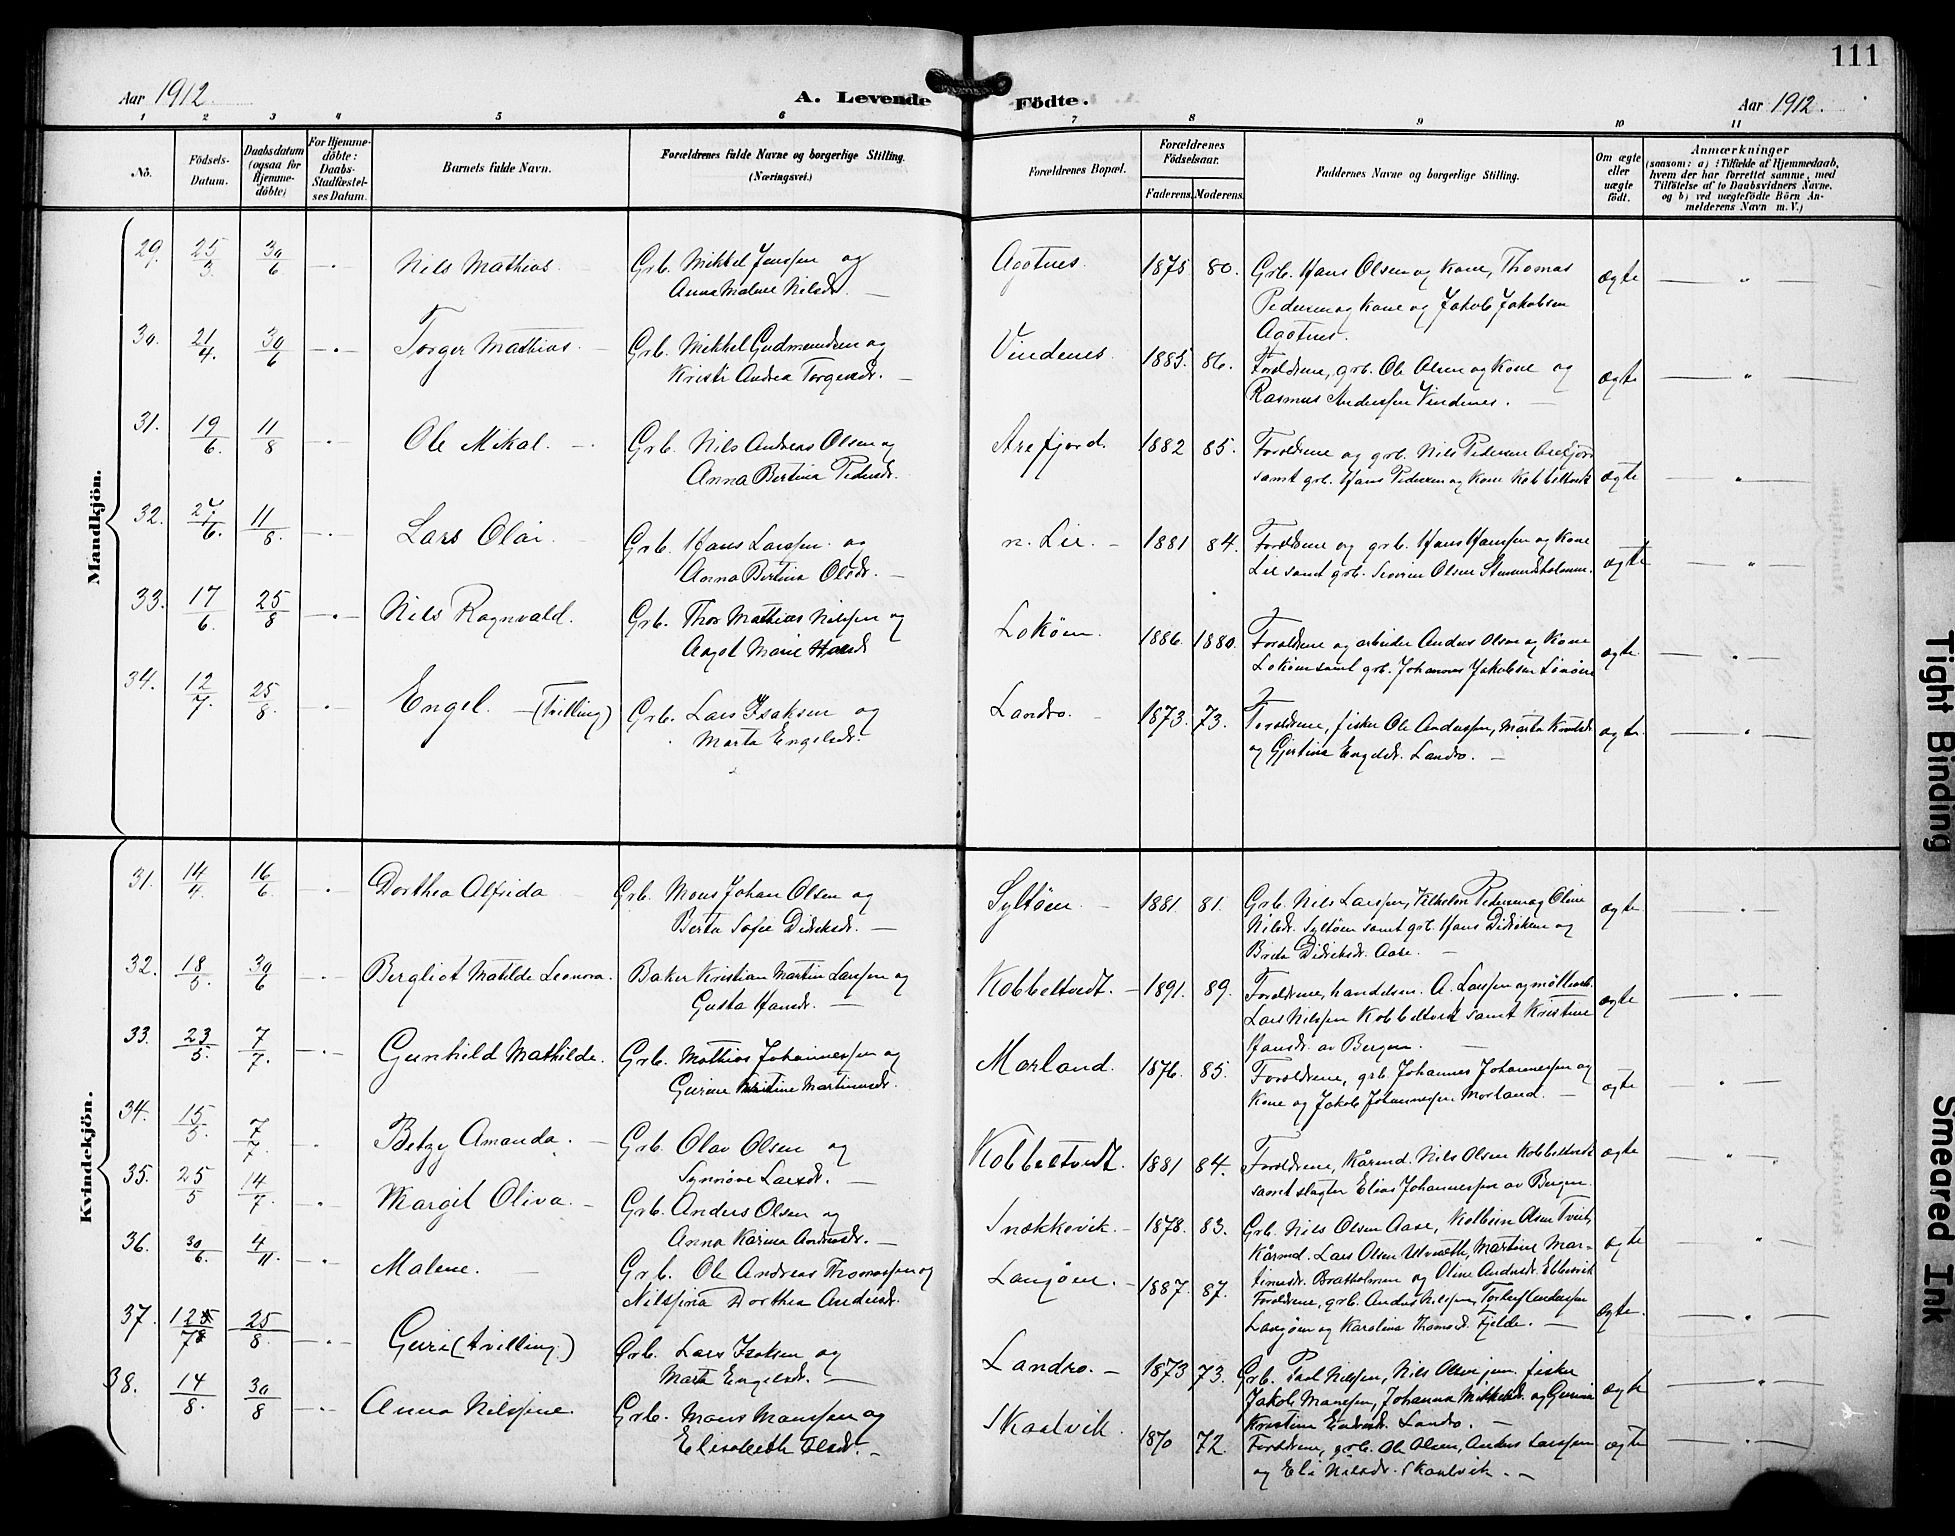 111
Aar 1912.
A. Levende
Födte.
Aar 1912.
1 2 3 4 5 6 7 8 9 10 11
No.
Födsels-Datum.
Daabsdatum (ogsaa for Hjemme-döbte)
For Hjemme-döbte: Daabs-Stadfæstel-ses Datum.
Barnets fulde Navn.
Forældrenes fulde Navne og borgerlige Stilling.
(Næringsvei.)
Forældrenes Bopæl.
Forældrenes Födselsaar.
Faderens. Moderens.
Faddernes Navne og borgerlige Stilling.
Om ægte eller uægte födt.
Anmærkninger
(saasom: a) i Tilfælde af Hjemmedaab,
hvem der har forrettet samme, med
Tilföielse af to Daabsvidners Navne,
og b) ved uægtefödte Börn An-
melderens Navn m. V.)
Mandkjön.
29. 25/3 30/6 Nils Mathias. Grb. Mikkel Jensen og
Anna Malene Nilsdr. —
Agotnes. 1875 80. Grb. Hans Olsen og Kone, Thomas
Pedersen og Kone og Jakob Jakobsen
Agotnes. ægte
30. 21/4. 30/6 Torger Mathias. Grb. Mikkel Gudmundsen og
Kristi Andrea Torgersdr. —
Vindenes. 1885. 86. Forældrene, grb. Ole Olsen og Kone og
Rasmus Anderssen Vindenes. — ægte
31. 19/6. 11/8 Ole Mikal. Grb. Nils Andreas Olsen og
Anna Bertina Pedersdr.
Arefjord. 1882 85. Forældrene og grb. Nils Pedersen Arefjord
samt grb. Hans Pedersen og Kone Kobbeltvedt ægte
32. /6. 11/8. Lars Olai. Grb. Hans Larssen og
Anna Bertina Olsdr. —
n. Lie. 1881 84. Forældrene og grb. Hans Hanssen og Kone
Lie samt grb. Severin Olsen ægte
33. 17/6. 25/8 Nils Ragnvald. Grb. Thor Mathias Nilssen og
Angot Marie Hansdr
Lokøen. 1886. 1880. Forældrene og arbeider Anders Olsen og Kone
Lokøen samt grb. Johannes Jakobsen ægte
34. 12/7. 25/8. Engel. — (Tvilling) Grb. Lars Isaksen og
Marta Engelsdr.
Landro. 1873. 73. Forældrene, fisker Ole Anderssen, Marta Knutsdr
og Gjertine Engelsdr. Landro. — ægte
Kvindekjön.
31. 14/4 16/6 Dorthea Alfrida Grb. Mons Johan Olsen og
Berta Sofie Didriksdr. —
Syltøen. 1881. 81. Grb. Nils Larssen, Vilhelm Pedersen og Oline
Nilsdr. Syltøen samt grb. Hans Didriksen og
Brita Didriksdr. Aase. — ægte
32. 18/5 30/6 Bergliot Matilde Leonora. Baker Kristian Martin Larssen og
Gusta Hansdr. —
Kobbeltvedt. 1891. 89. Forældrene, handelsm. A. Larssen og
Lars Nilssen Kobbeltvedt samt Kristine
Hansdr. av Bergen. — ægte
33. 23/5. 7/7 Gunhild Mathilde. Grb. Mathias Johannessen og
Gurine Kristine Martinusdr.
Morland. 1876. 85. Forældrene, grb. Johannes Johannessen og
Kone og Jakob Johannessen Morland. — ægte
34. 15/5. 7/7. Betzy Amanda. Grb. Olav Olsen og
Synnøve Larsdr. —
Kobbeltvedt. 1881 84. Forældrene, Kårmd. Nils Olsen Kobbeltvedt
samt slagter Elias Johannessen av Bergen. ægte
35. 25/5 14/7 Margit Oliva. Grb. Anders Olsen og
Anna Karina Andersdr. —
Snekkevik. 1878. 83. Grb. Nils Olsen Aase, Kolbein Olsen Tveit,
Kårmd. Lars Olsen, Martine Mar-
tinusdr. Bratholmen og Oline Andersdr. Ebbesvik ægte
36. 30/6 4/11. Malene. Grb. Ole Andreas Thomassen og
Nilsina Dorthea Andersdr.
Langøen. 1887. 87. Forældrene, grb. Anders Nilssen, Torleif Anderssen
Langøen og Karolina Thomasdr. Fjelde. — ægte.
37. 12/7 25/8. Guri (tvilling) Grb. Lars Isaksen og
Marta Engelsdr. —
Landro. 1873 73. Grb. Paul Nilssen, Nils Olsen jun. fisker
Jakob Monssen, Johanna Mikkelsdr. og Gurina
Kristine Endresdr. Landro. — ægte
38. 14/8. 30/8 Anna Nilssine. Grb. Mons Monssen og
Elisabeth Olsdr. —
Skaalvik. 1870 72. Forældrene, grb. Ole Olsen, Anders Larssen
og Eli Nilsdr. Skaalvik. — ægte
Tight Binding
Smeared Ink